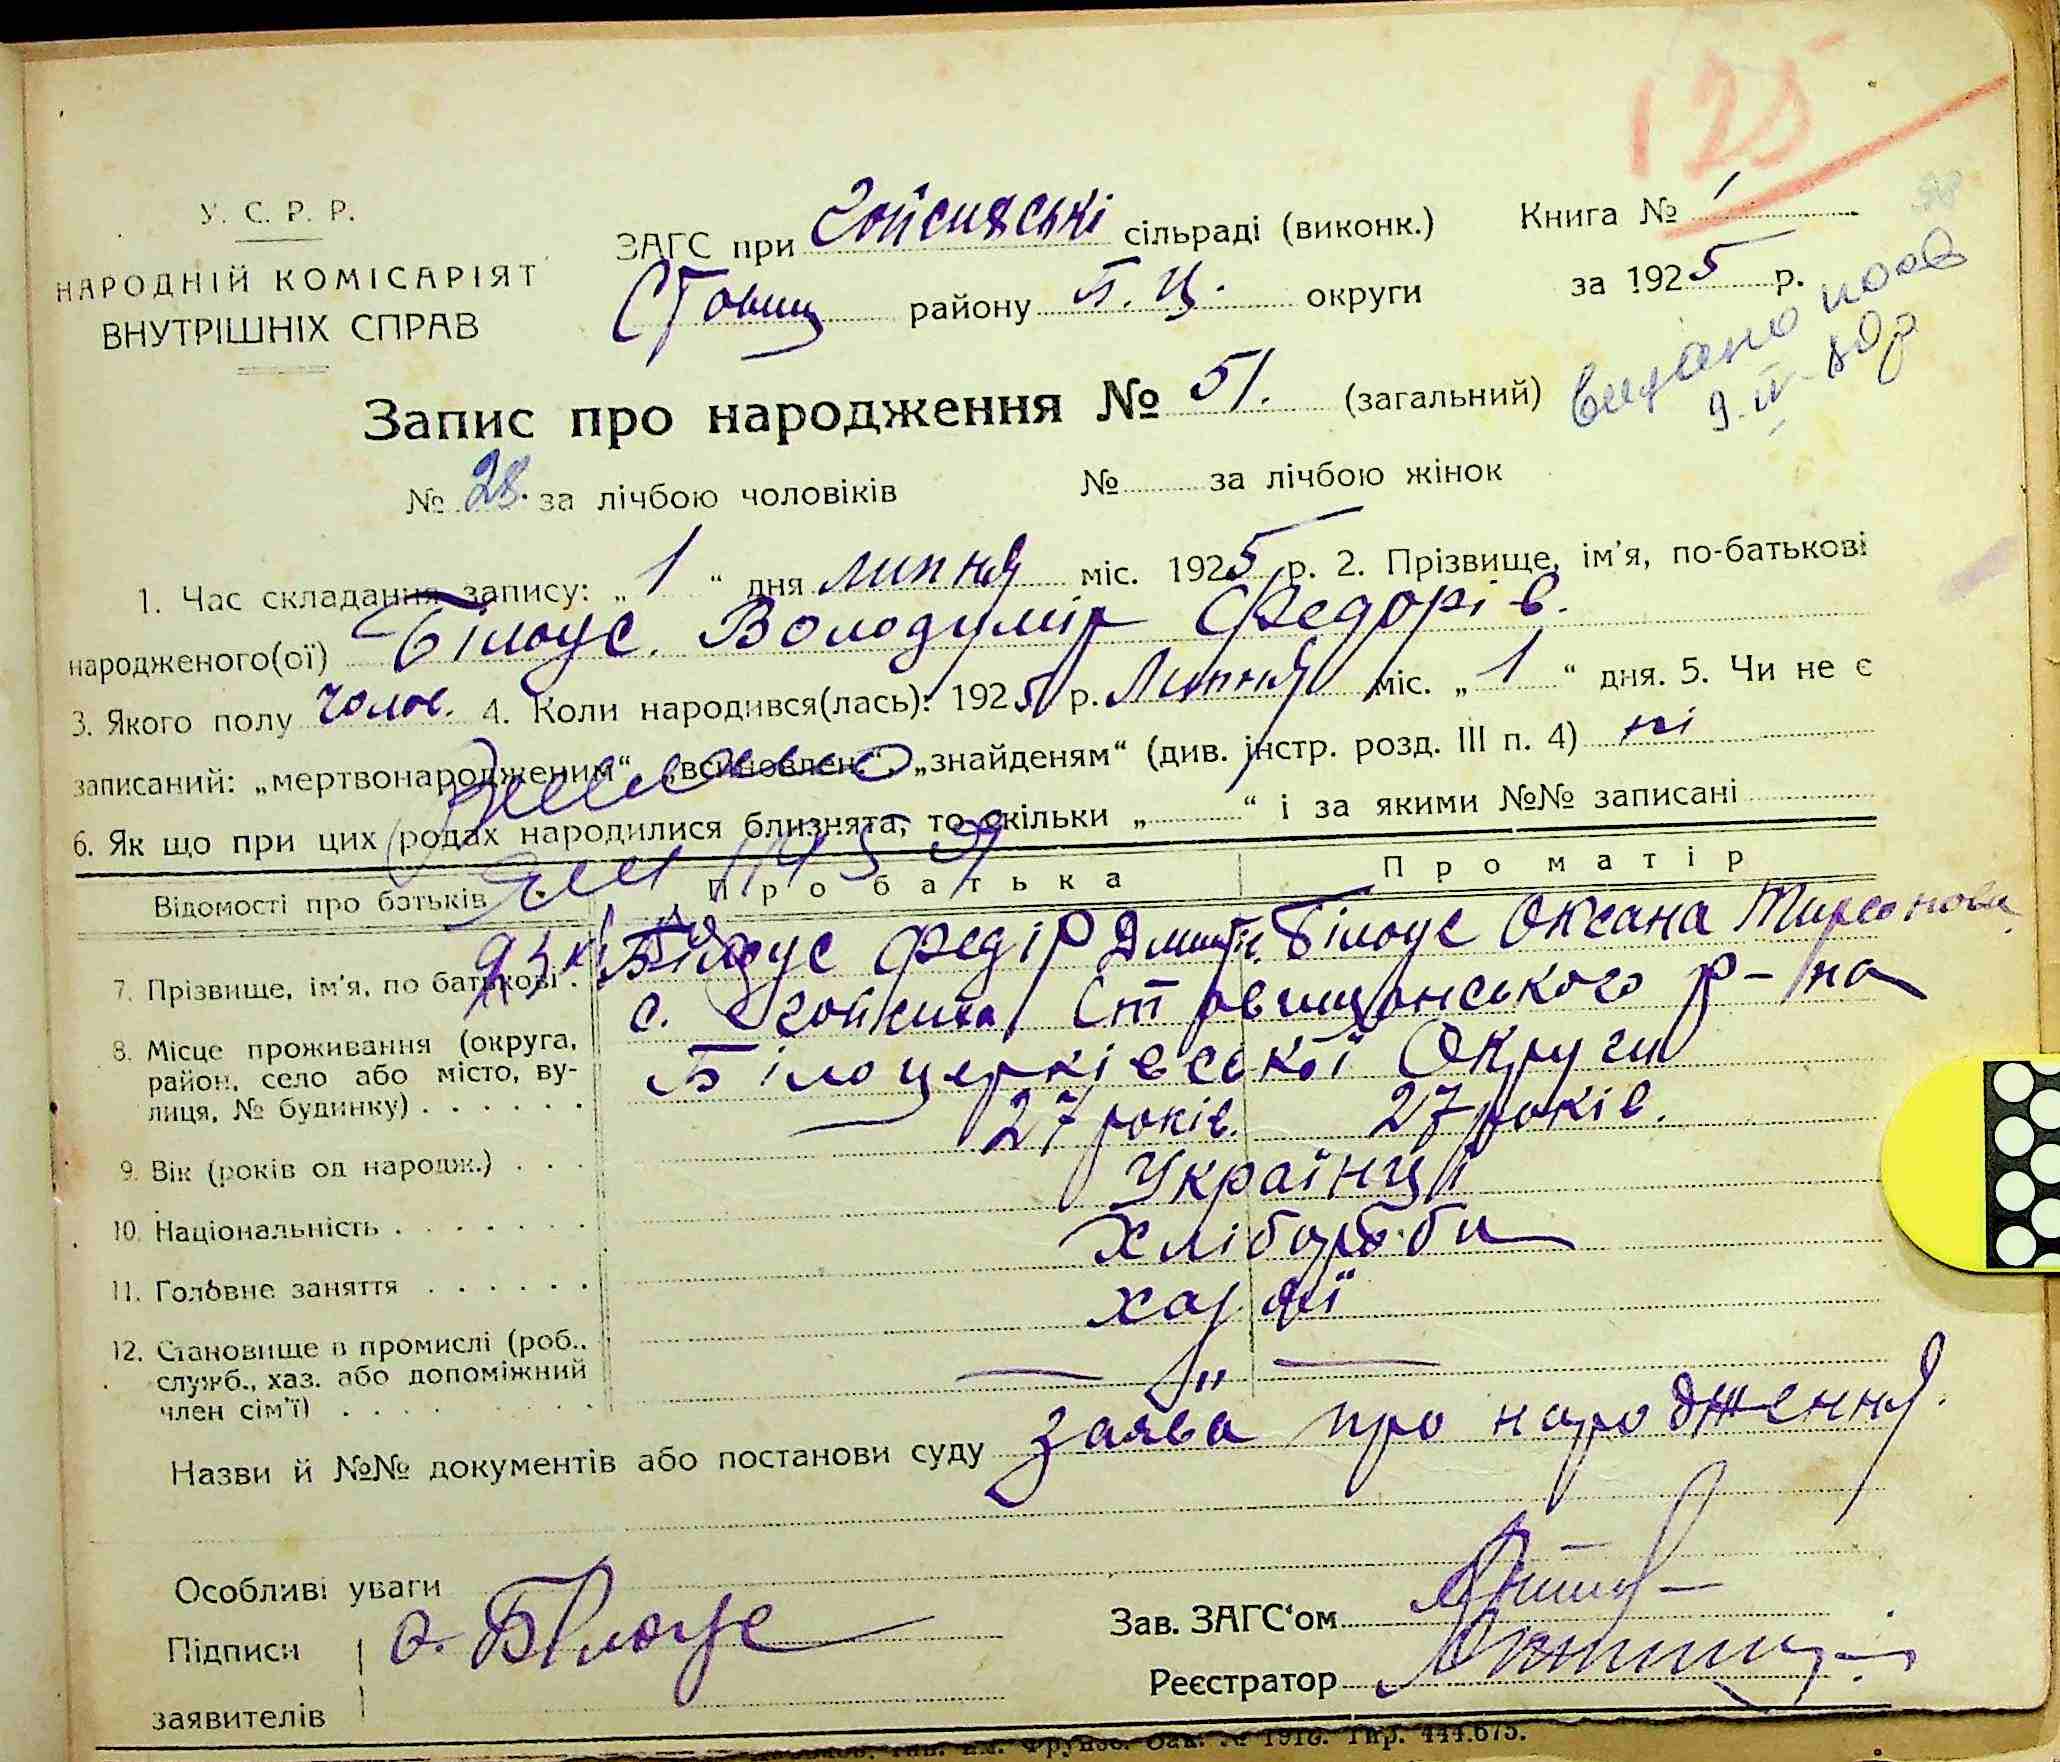 125
У. С. Р. Р.
НАРОДНІЙ КОМІСАРІЯТ
ВНУТРІШНІХ СПРАВ
ЗАГС при сільраді (виконк.)
Ставищ району Б. Ц. округи
Книга № 1
за 1925 р.
видано
9. IV
Запис про народження № 51. (загальний)
№ 28. за лічбою чоловіків № за лічбою жінок
1. Час складання запису: „1“ дня липня міс. 1925 р. 2. Прізвище, ім'я, по-батькові
народженого(ої) Білоус. Володимір Федорів.
3. Якого полу чолов. 4. Коли народився(лась): 1925 р. Липня міс. „1“ дня. 5. Чи не є
записаний: „мертвонародженим“ „всиновлен.“, „знайденям“ (див. інстр. розд. III п. 4) ні
6. Як що при цих родах народилися близнята, то скільки „ “ і за якими №№ записані
Відомості про батьків Про батька Про матір
7. Прізвище, ім'я, по батькові. Білоус Федір Дмит. Білоус Оксана
8. Місце проживання (округа, район, село або місто, вулиця, № будинку) с. Ставищанського р-на
Білоцерківської Округи
9. Вік (років од народж.) 27 років. 27 років.
10. Національність Українці
11. Головне заняття Хлібороби
12. Становище в промислі (роб., служб., хаз. або допоміжний член сім'ї)
Назви й №№ документів або постанови суду заява про народження.
Особливі уваги
Підписи
заявителів
О. Білоус
Зав. ЗАГС'ом
Реєстратор